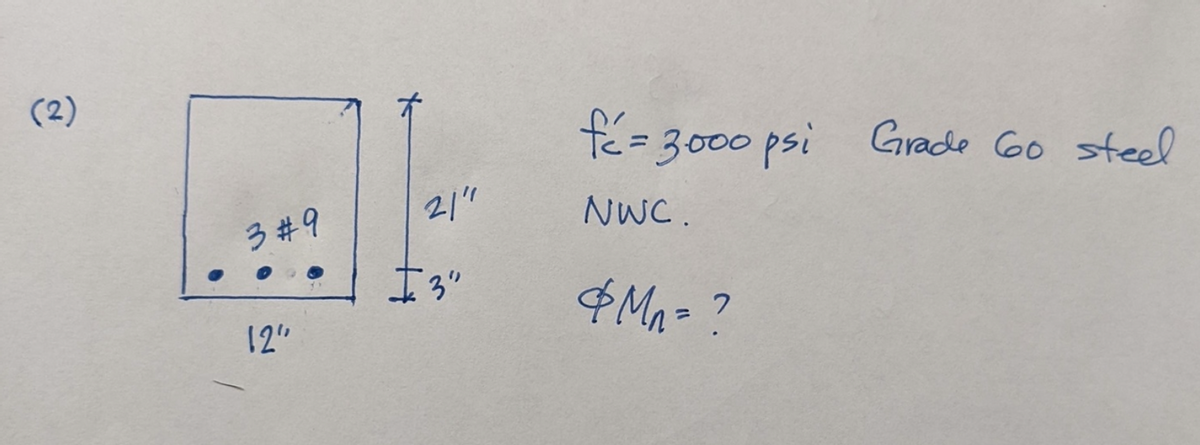 (2)
f'c = 3000 psi Grade 60 steel
21"
NWC.
3 #9
3"
φMn = ?
12"